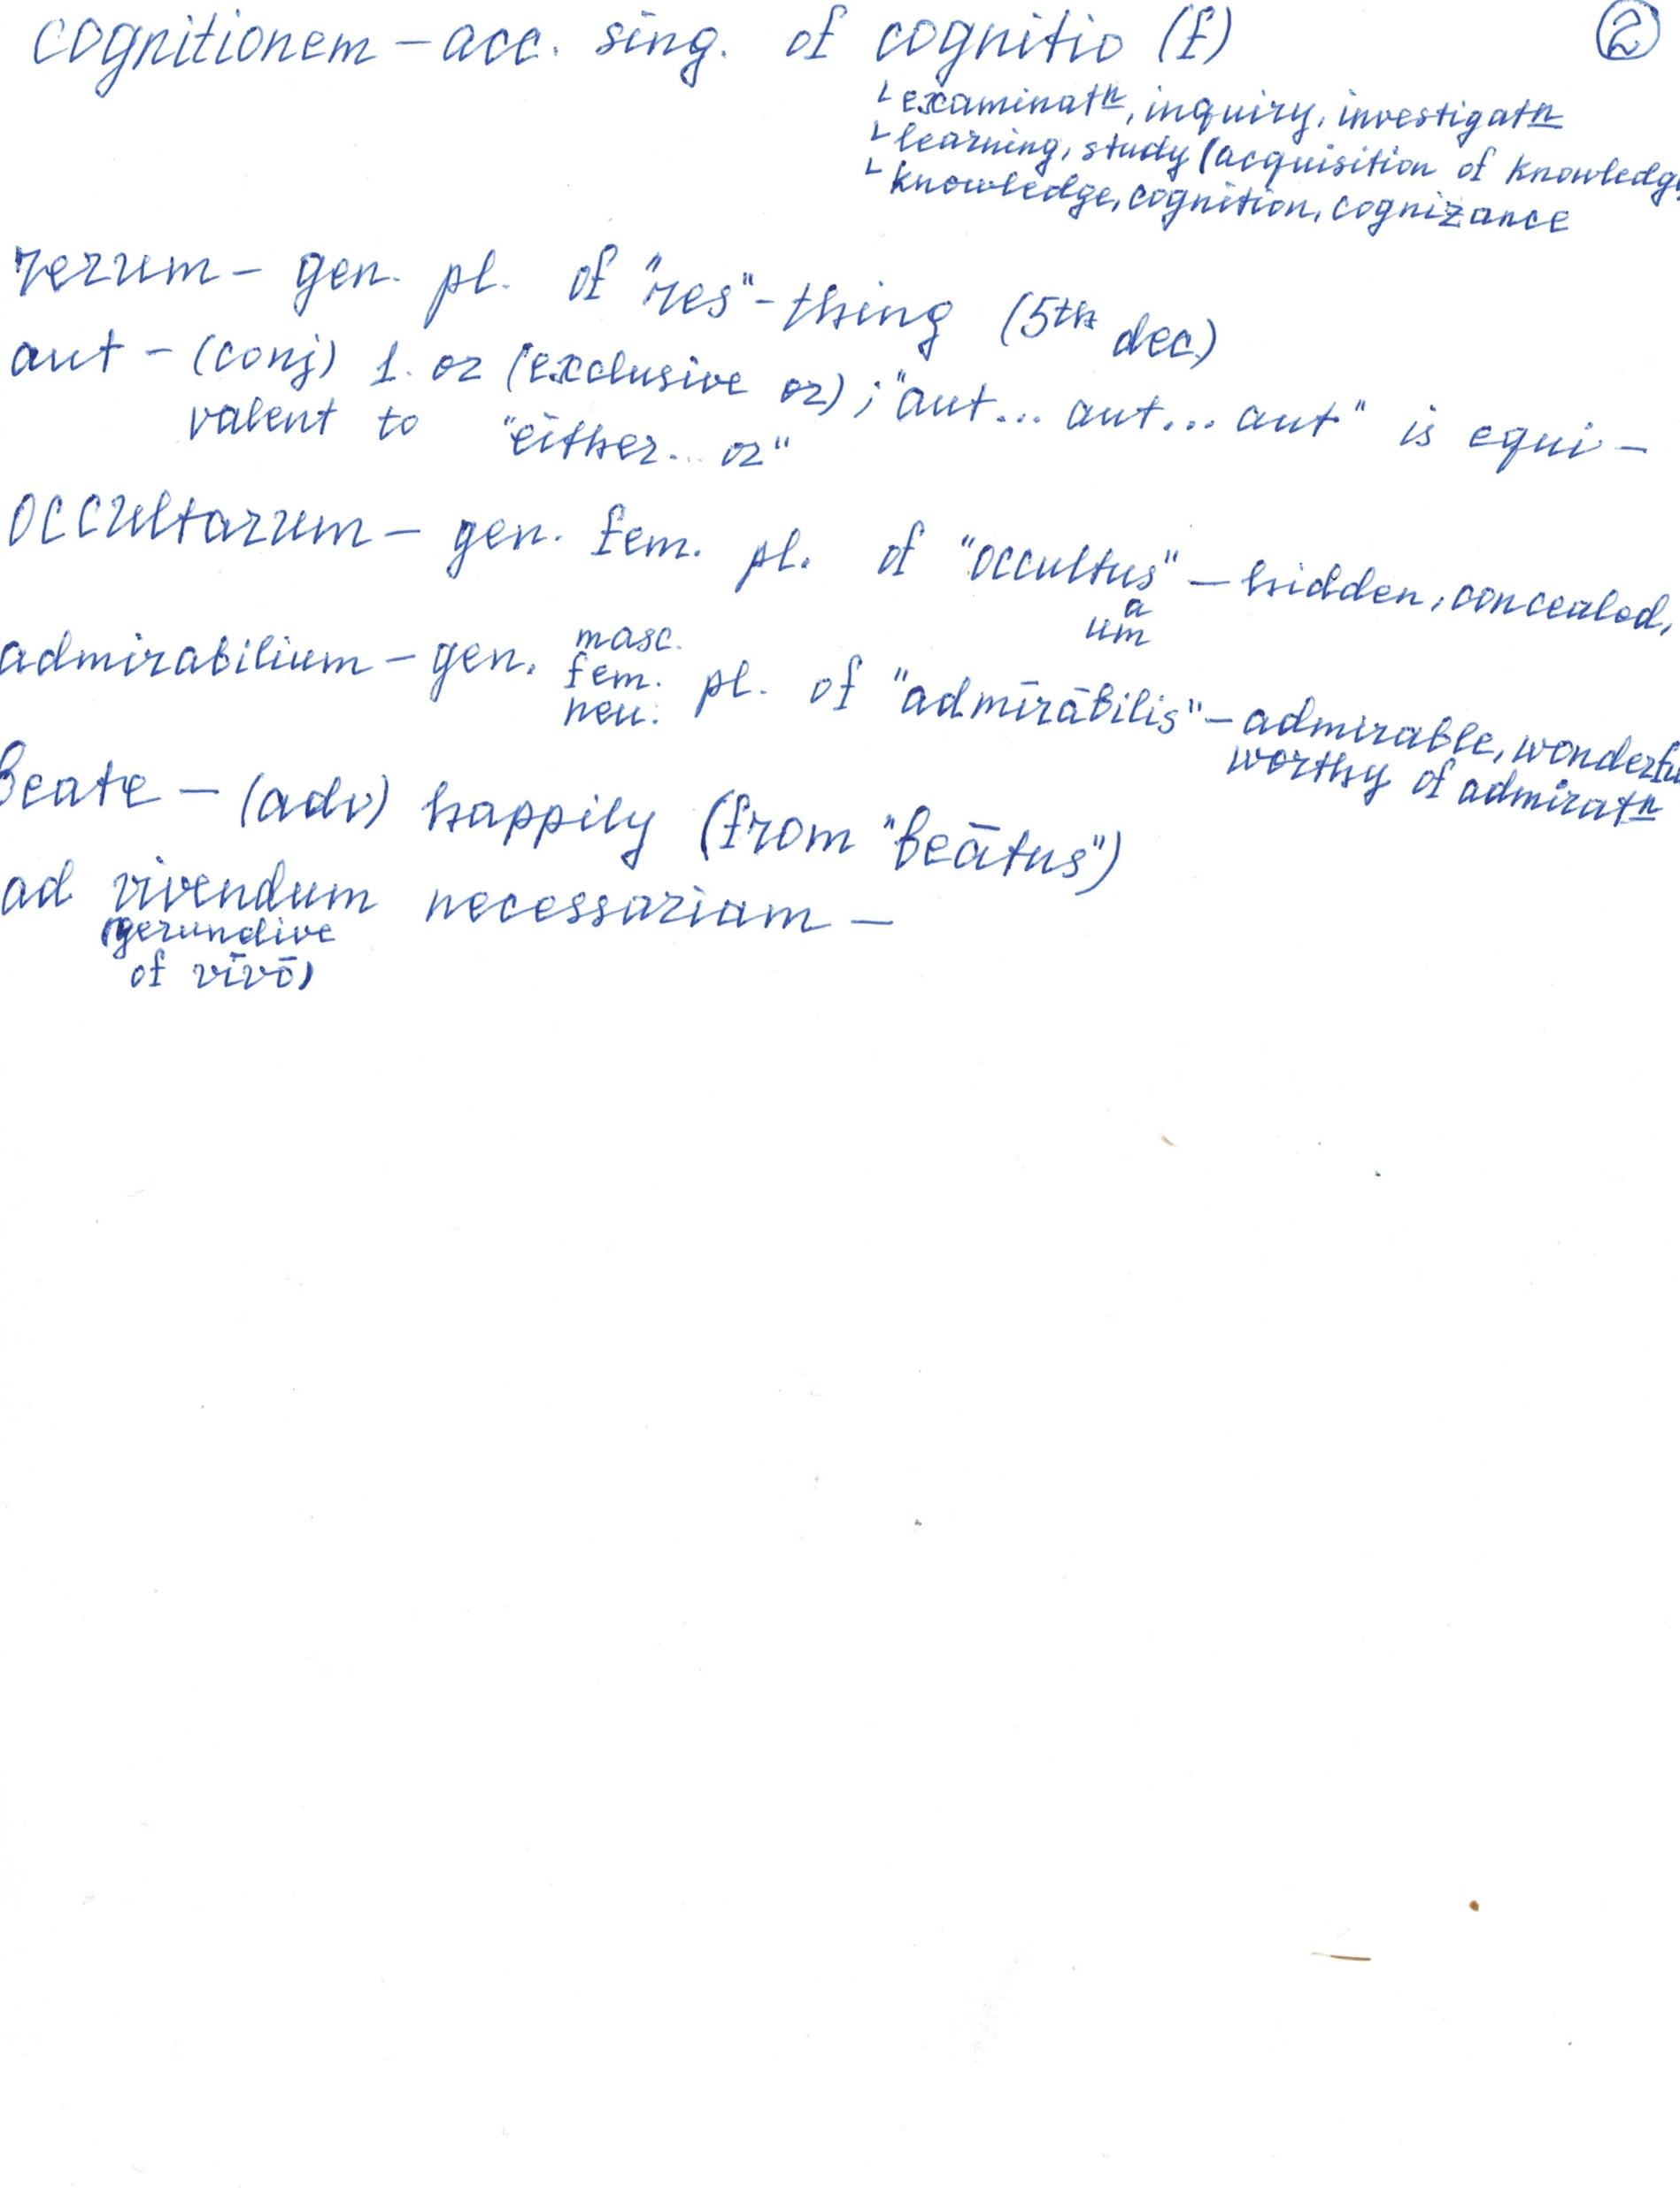 cognitionem – acc. sing. of cognitio (f) 2
└ examinatn, inquiry, investigatn
└ learning, study (acquisition of knowledge
└ knowledge, cognition, cognizance
rerum – gen. pl. of "res" - thing (5th dec.)
aut – (conj) 1. or (exclusive or); "aut... aut... aut" is equi-
valent to "either... or"
occultarum – gen. fem. pl. of "occultus" – hidden, concealed,
a
um
admirabilium – gen. masc. fem. neu. pl. of "admīrābilis" – admirable, wonderfu
worthy of admiratn
Beate – (adv) happily (from "beātus")
ad vivendum necessariam –
(gerundive
of vīvō)